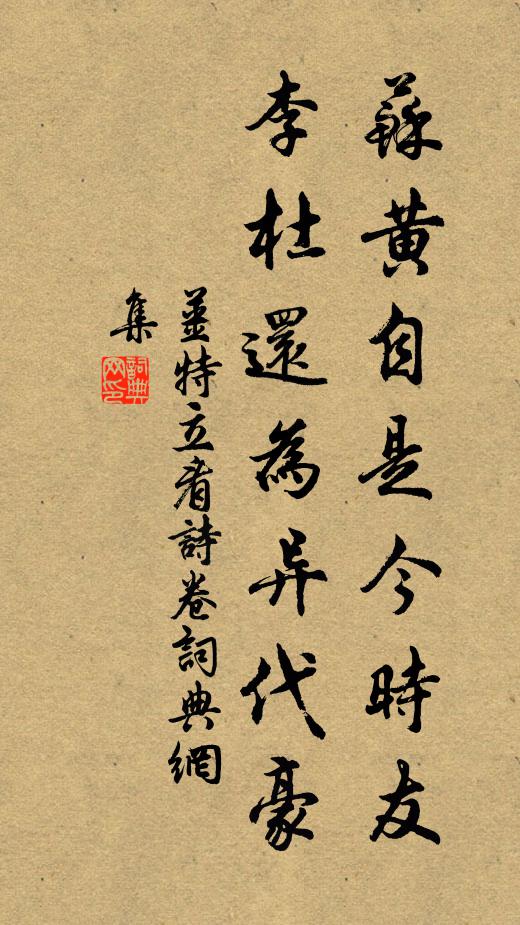 蘇黃自是今時友
李杜還為异代豪
姜特立看詩卷詞典網
集
詞典網印